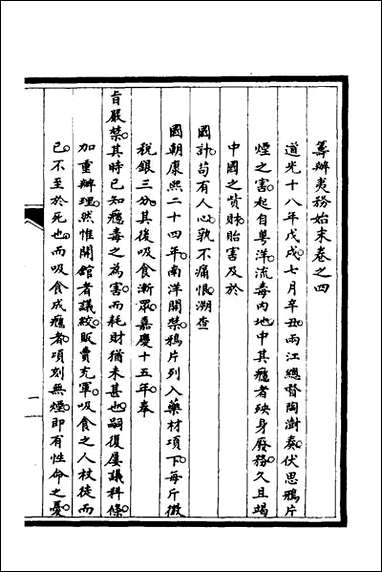 籌辦夷務始末卷之四
道光十八年戊戌七月辛丑兩江總督陶澍奏伏思鴉片
煙之害起自粤洋流毒內地中其癮者殃身廢務久且竭
中國之貲財貽害及於
國計苟有人心孰不痛恨溯查
國朝康熙二十四年南洋開禁鴉片列入藥材項下每斤徵
稅銀三分其後吸食漸眾嘉慶十五年奉
旨嚴禁其時已知癮毒之為害而耗財猶未甚也嗣復屢議科條
加重辦理然惟開館者議絞販賣充軍吸食之人杖徒而
已不至於死也而吸食成癮者頃刻無煙即有性命之憂
一